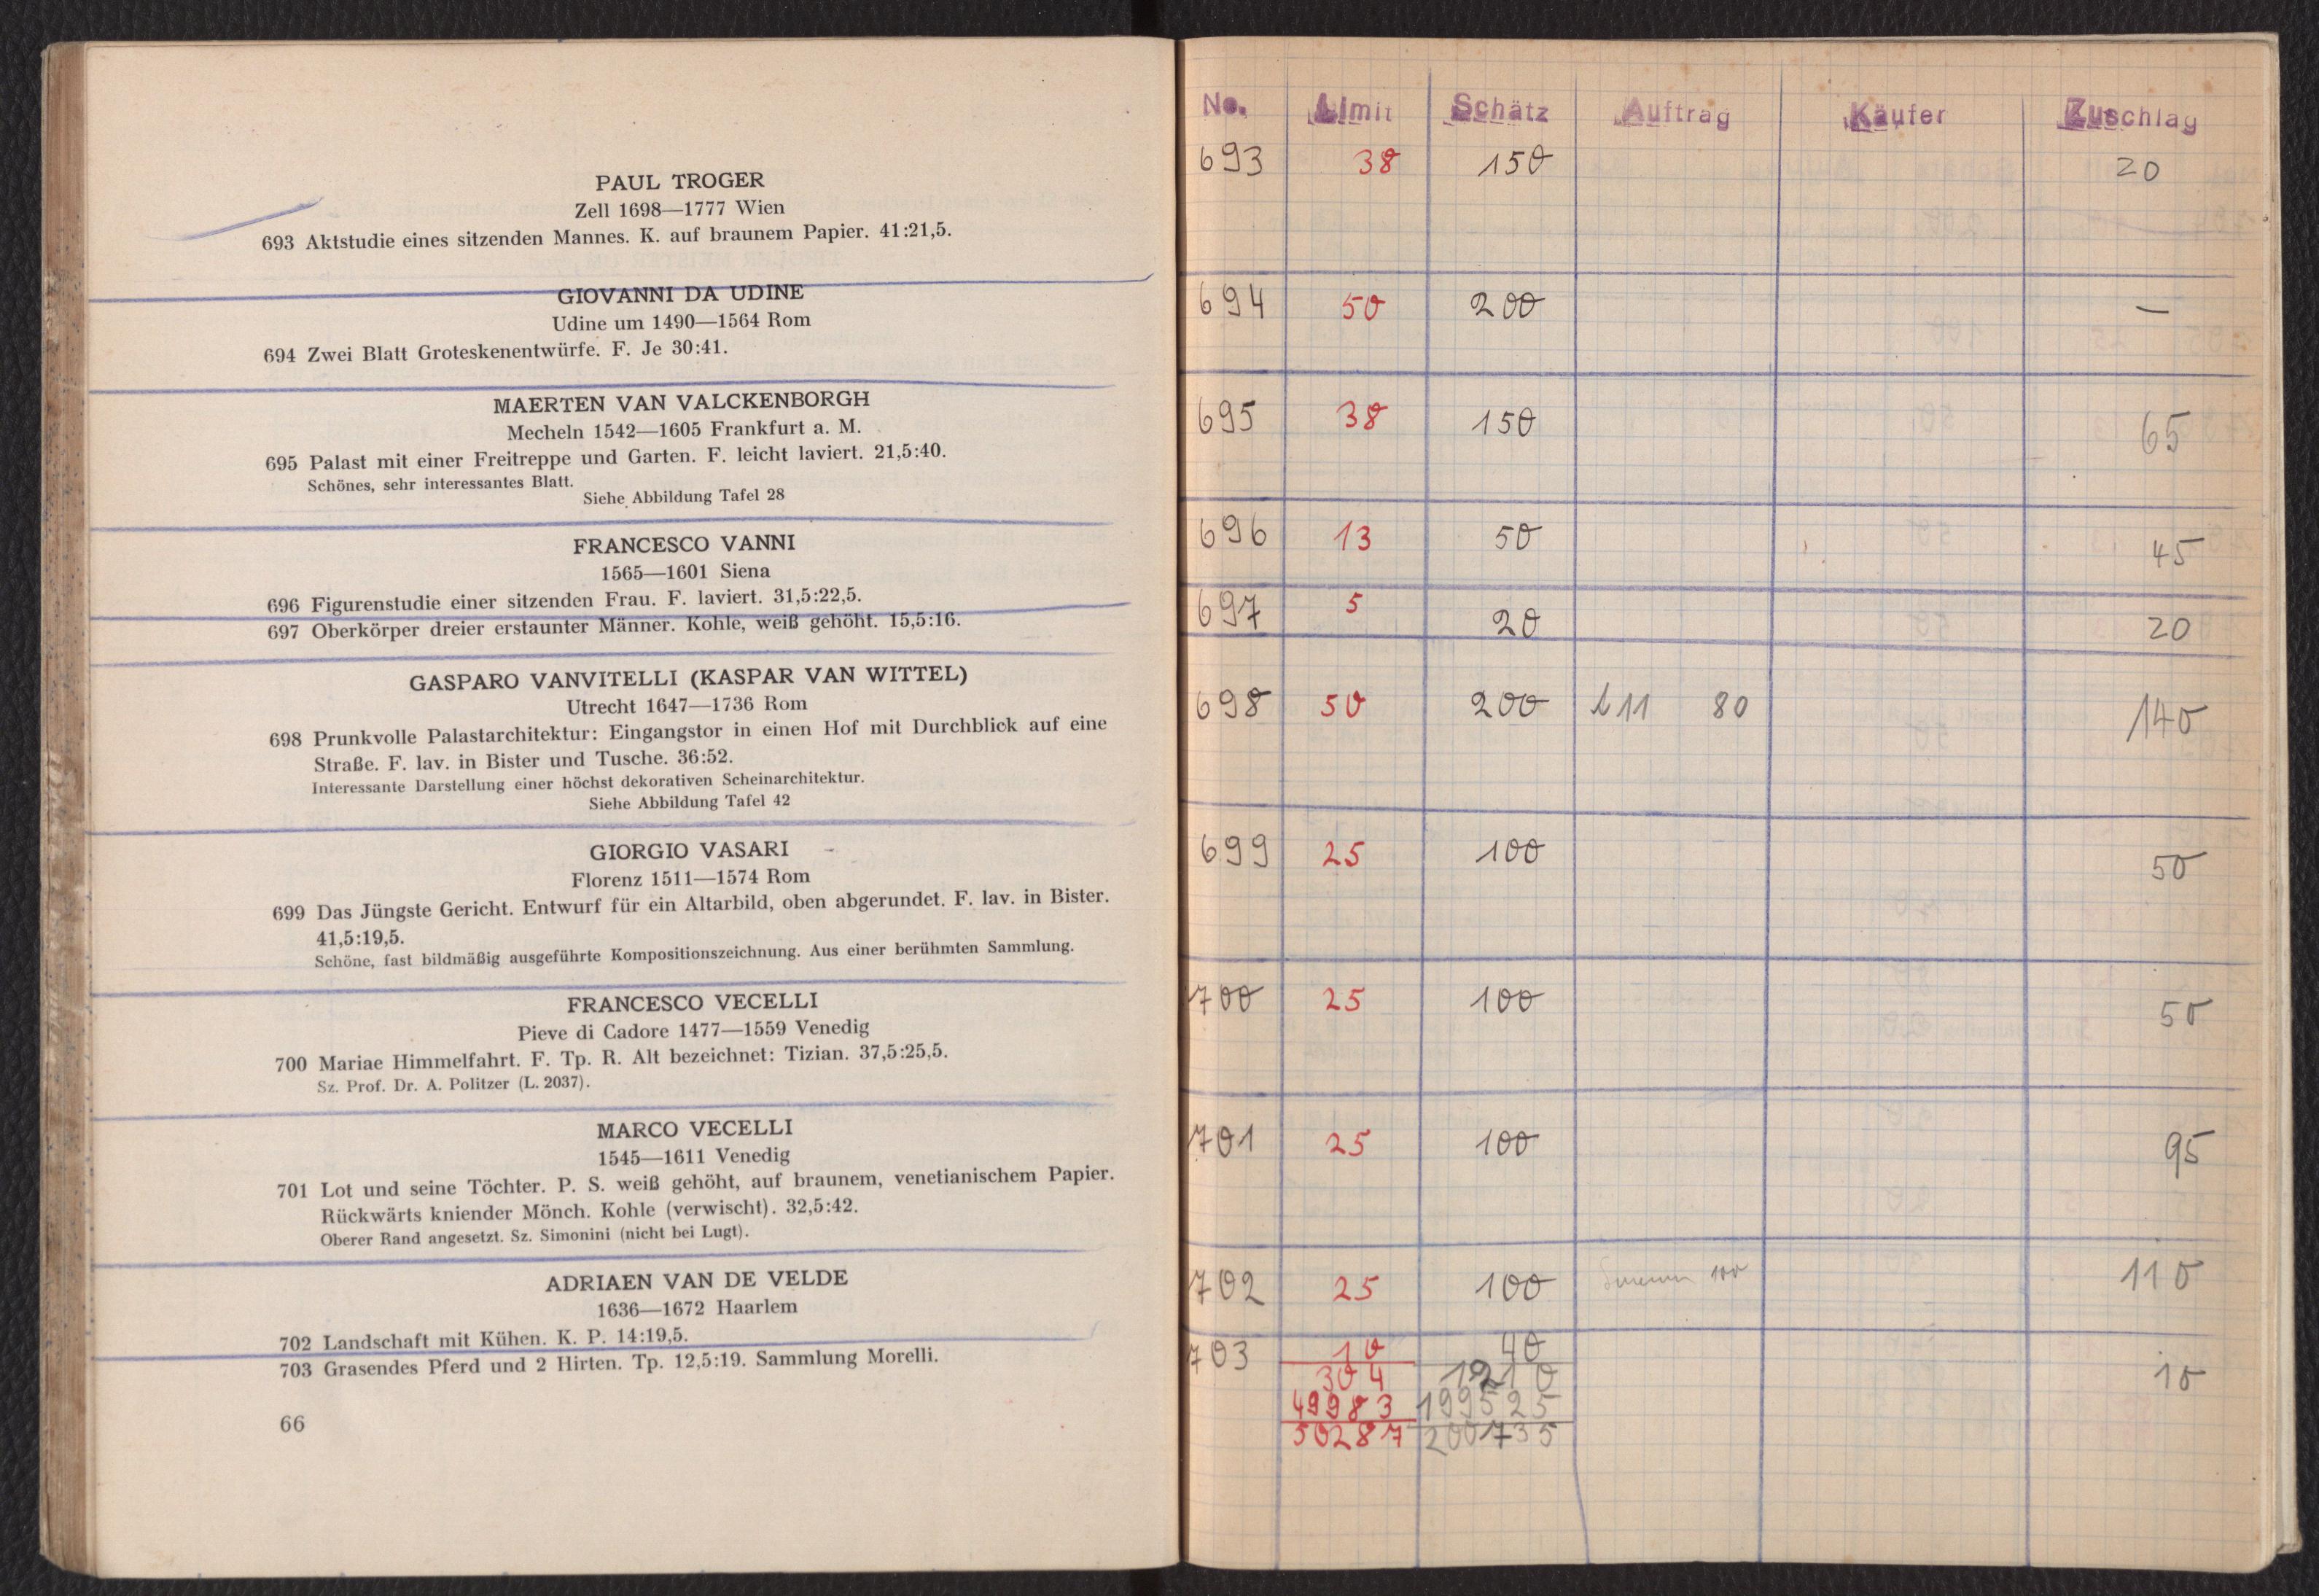 PAUL TROGER
Zell 1698—1777 Wien
693 Aktstudie eines sitzenden Mannes. K. auf braunem Papier. 41:21,5.
GIOVANNI DA UDINE
Udine um 1490—1564 Rom
694 Zwei Blatt Groteskenentwürfe. F. Je 30:41.
MAERTEN VAN VALCKENBORGH
Mecheln 1542—1605 Frankfurt a. M.
695 Palast mit einer Freitreppe und Garten. F. leicht laviert. 21,5:40.
Schönes, sehr interessantes Blatt.
Siehe Abbildung Tafel 28
FRANCESCO VANNI
1565—1601 Siena
696 Figurenstudie einer sitzenden Frau. F. laviert. 31,5:22,5.
697 Oberkörper dreier erstaunter Männer. Kohle, weiß gehöht. 15,5:16.
GASPARO VANVITELLI (KASPAR VAN WITTEL)
Utrecht 1647—1736 Rom
698 Prunkvolle Palastarchitektur: Eingangstor in einen Hof mit Durchblick auf eine
Straße. F. lav. in Bister und Tusche. 36:52.
Interessante Darstellung einer höchst dekorativen Scheinarchitektur.
Siehe Abbildung Tafel 42
GIORGIO VASARI
Florenz 1511—1574 Rom
699 Das Jüngste Gericht. Entwurf für ein Altarbild, oben abgerundet. F. lav. in Bister.
41,5:19,5.
Schöne, fast bildmäßig ausgeführte Kompositionszeichnung. Aus einer berühmten Sammlung.
FRANCESCO VECELLI
Pieve di Cadore 1477—1559 Venedig
700 Mariae Himmelfahrt. F. Tp. R. Alt bezeichnet: Tizian. 37,5:25,5.
Sz. Prof. Dr. A. Politzer (L. 2037).
MARCO VECELLI
1545—1611 Venedig
701 Lot und seine Töchter. P. S. weiß gehöht, auf braunem, venetianischem Papier.
Rückwärts kniender Mönch. Kohle (verwischt). 32,5:42.
Oberer Rand angesetzt. Sz. Simonini (nicht bei Lugt).
ADRIAEN VAN DE VELDE
1636—1672 Haarlem
702 Landschaft mit Kühen. K. P. 14:19,5.
703 Grasendes Pferd und 2 Hirten. Tp. 12,5:19. Sammlung Morelli.
66
No. Limit Schätz Auftrag Käufer Zuschlag
693 38 150 20
694 50 200 —
695 38 150 65
696 13 50 45
697 5 20 20
698 50 200 80 140
699 25 100 50
700 25 100 50
701 25 100 95
702 25 100 100 110
703 10 40 10
304 1210
49983 199525
50287 200735